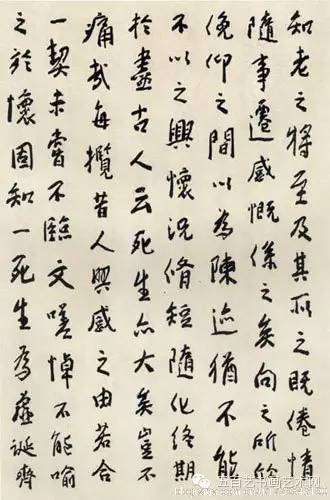 知老之將至及其所之既倦情
隨事遷感慨係之矣向之所欣
俛仰之間以為陳迹猶不能
不以之興懷況脩短隨化終期
於盡古人云死生亦大矣豈不
痛哉每攬昔人興感之由若合
一契未嘗不臨文嗟悼不能喻
之於懷固知一死生為虛誕齊
五百艺书画艺术网